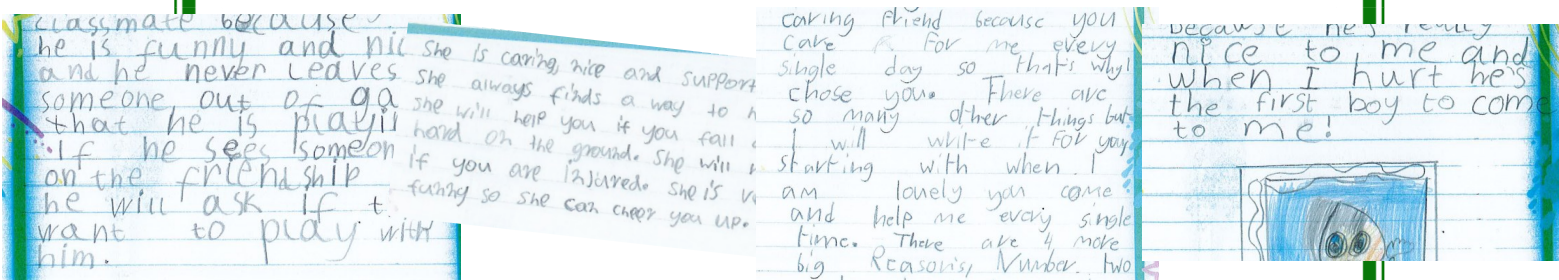 classmate because
he is funny and nic
and he never leaves
someone out of ga
that he is playin
If he sees someon
on the friendship
he will ask if t
want to play with
him.
She is caring, nice and support
She always finds a way to h
she will help you if you fall
hard on the ground. She will
if you are injured. She is v
funny so she can cheer you up.
caring friend because you
care for me every
single day so that's why I
chose you. There are
so many other things but
I will write it for you
starting with when I
am lovely you come
and help me every single
time. There are 4 more
big Reasons, Number two
because he's really
nice to me and
when I hurt he's
the first boy to come
to me!